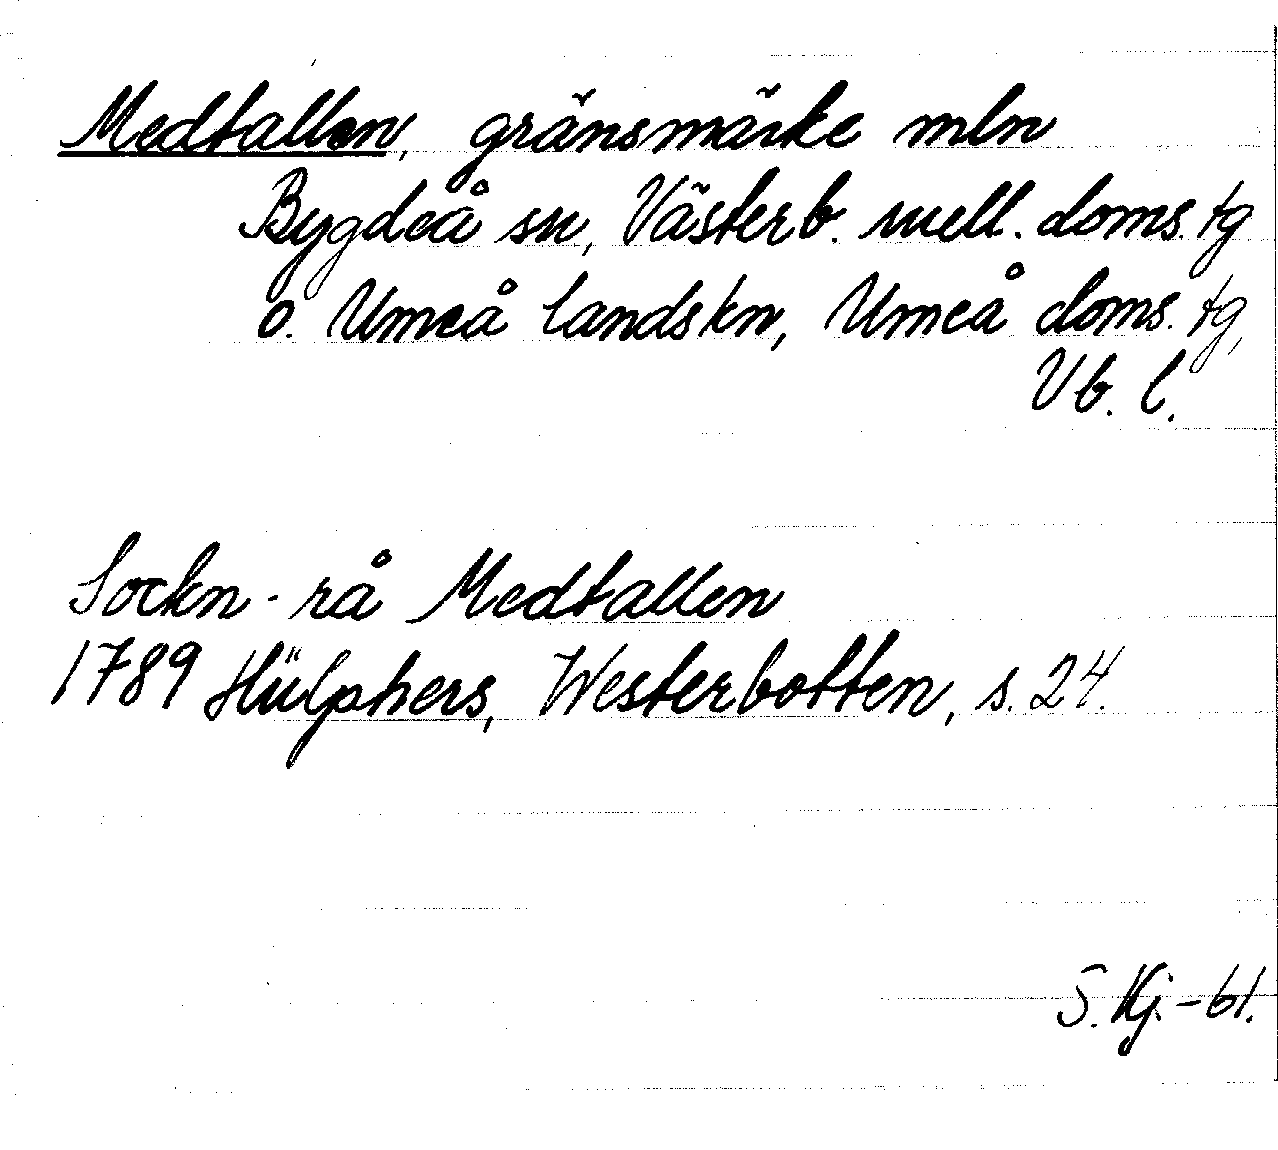 Medtallen, gränsmärke mln
Bygdeå sn, Västerb. mell. doms. tg
o. Umeå landskn, Umeå doms. tg,
Vb. l.
Sockn-rå Medtallen
1789 Hülphers, Westerbotten, s. 24.
S. Kj. -61.